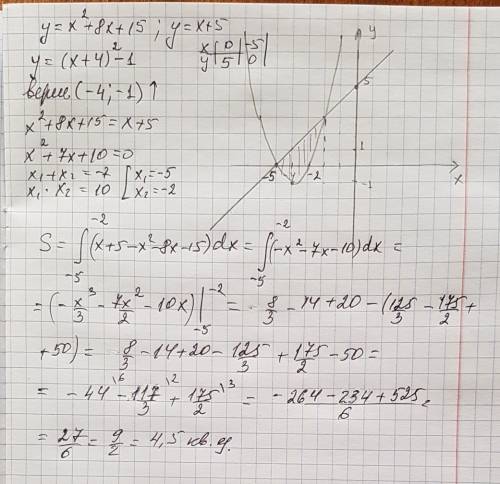 y = x² + 8x + 15 ; y = x + 5
y = (x+4)² - 1
x | 0 | -5 |
y | 5 | 0 |
верш (-4; -1) ↑
x² + 8x + 15 = x + 5
x² + 7x + 10 = 0
x₁ + x₂ = -7 [ x₁ = -5
x₁ · x₂ = 10 [ x₂ = -2
y
5
1
-5
-2
x
-1
S = ∫₋₅⁻² (x + 5 - x² - 8x - 15) dx = ∫₋₅⁻² (-x² - 7x - 10) dx =
= (-x³/3 - 7x²/2 - 10x) |₋₅⁻² = 8/3 - 14 + 20 - (125/3 - 175/2 +
+ 50) = 8/3 - 14 + 20 - 125/3 + 175/2 - 50 =
= -44\⁶ - 117/3\² + 175/2\³ = (-264 - 234 + 525)/6 =
= 27/6 = 9/2 = 4,5 кв. ед.